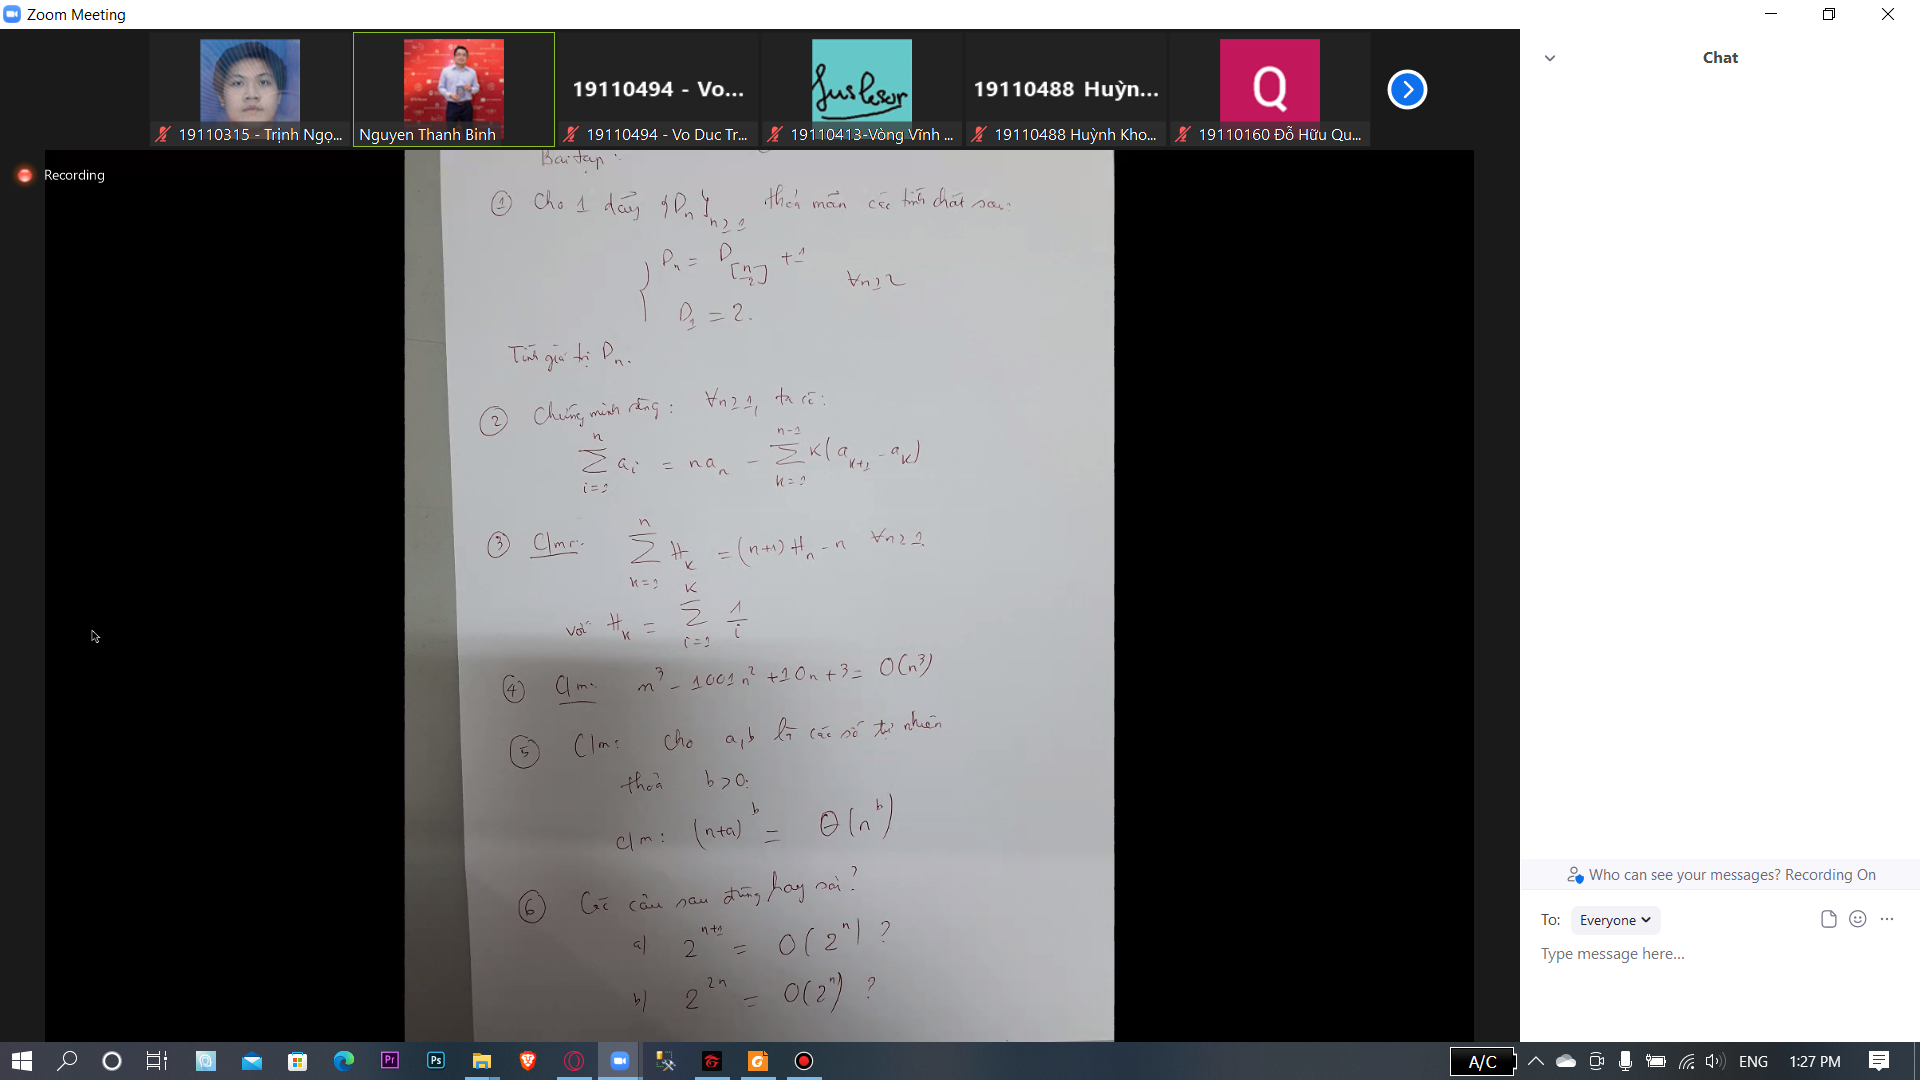 Zoom Meeting
19110494 - Vo...
19110488 Huỳn...
Q
19110315 - Trịnh Ngọ...
Nguyen Thanh Binh
19110494 - Vo Duc Tr...
19110413-Vòng Vĩnh ...
19110488 Huỳnh Kho...
19110160 Đỗ Hữu Qu...
Recording
Bài tập:
① Cho 1 dãy {Dn}n≥1 thoả mãn các tính chất sau:
Dn = D[n/2] + 1 ∀n≥2
D1 = 2.
Tính giá trị Dn.
② Chứng minh rằng: ∀n≥1, ta có:
∑_{i=1}^{n} a_i = na_n - ∑_{k=1}^{n-1} k(a_{k+1} - a_k)
③ C/mr: ∑_{k=1}^{n} H_k = (n+1)H_n - n ∀n≥1
với H_k = ∑_{i=1}^{k} 1/i
④ C/m: n³ - 1001n² + 10n + 3 = O(n³)
⑤ C/m: cho a,b là các số tự nhiên
thoả b>0:
c/m: (n+a)^b = Θ(n^b)
⑥ Các câu sau đúng hay sai?
a) 2^{n+1} = O(2^n) ?
b) 2^{2n} = O(2^n) ?
Chat
Who can see your messages? Recording On
To: Everyone
Type message here...
Pr
Ps
A/C
ENG
1:27 PM